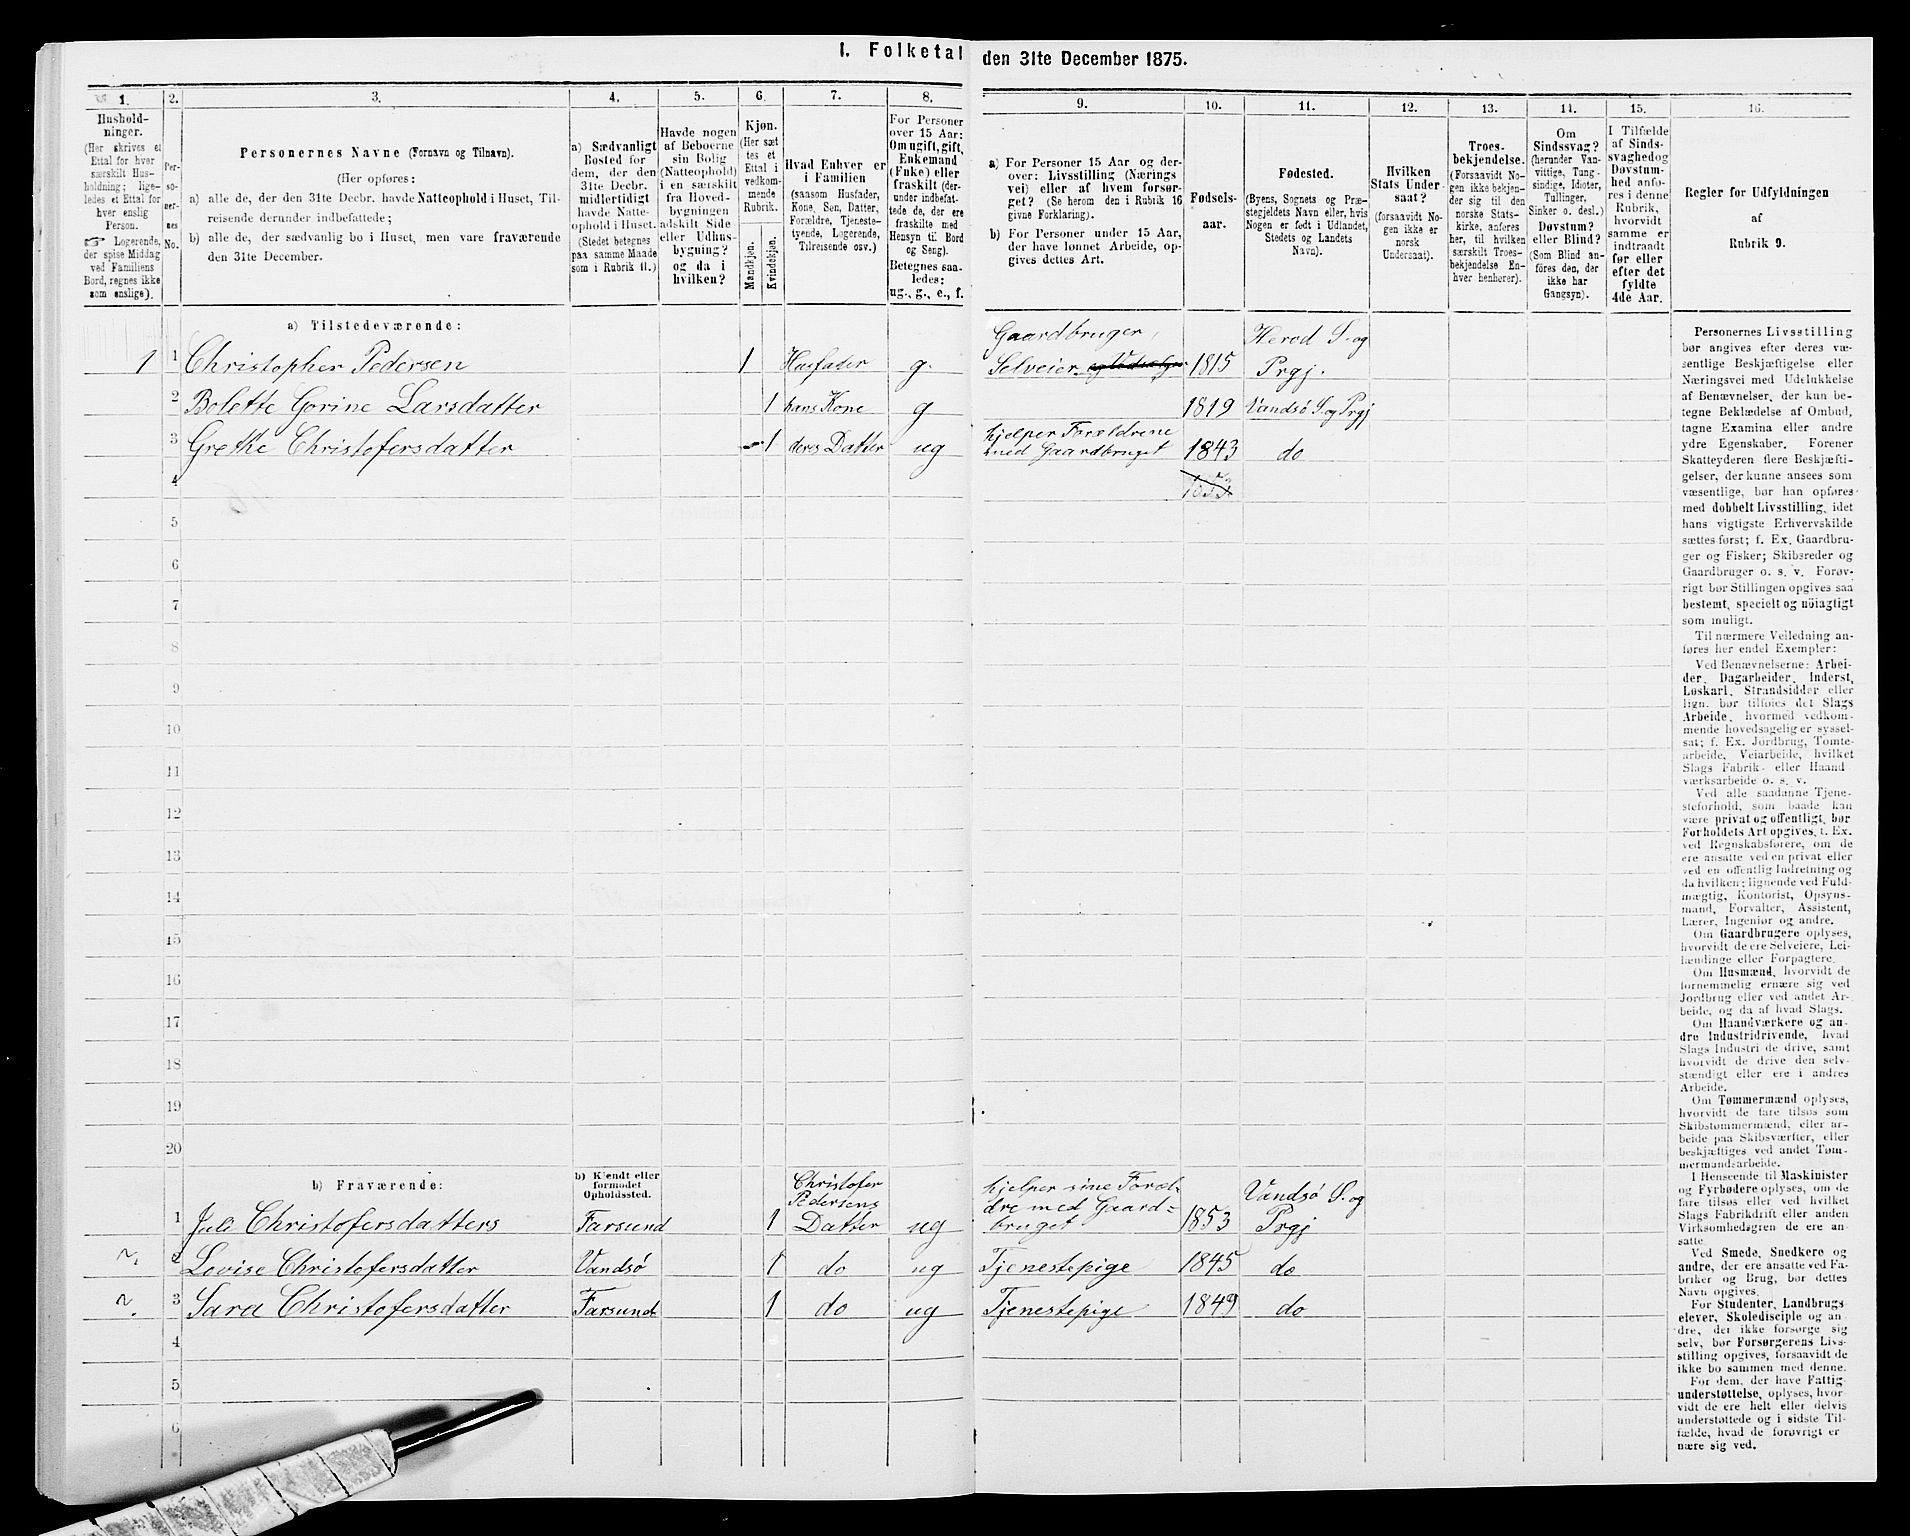 I. Folketal den 31te December 1875.
1. 2. 3. 4. 5. 6. 7. 8. 9. 10. 11. 12. 13. 14. 15. 16.
Hushold-
ninger.
(Her skrives et
Ettal for hver
særskilt Hus-
holdning; lige-
ledes et Ettal for
hver enslig
Person.
☞ Logerende,
der spise Middag
ved Familiens
Bord, regnes ikke
som enslige).
Per-
so-
ner-
nes
No.
Personernes Navne (Fornavn og Tilnavn).
(Her opføres:
a) alle de, der den 31te Decbr. havde Natteophold i Huset, Til-
reisende derunder indbefattede;
b) alle de, der sædvanlig bo i Huset, men vare fraværende
den 31te December.
a) Sædvanligt
Bosted for
dem, der den
31te Decbr.
midlertidigt
havde Natte-
ophold i Huset.
(Stedet betegnes
paa samme Maade
som i Rubrik 11.)
Havde nogen
af Beboerne
sin Bolig
(Natteophold)
i en særskilt
fra Hoved-
bygningen
adskilt Side-
eller Udhus-
bygning?
og da i
hvilken?
Kjøn.
(Her sæt
tes et
Ettal i
vedkom-
mende
Rubrik.
Mandkjøn.
Kvindekjøn.
Hvad Enhver er
i Familien
(saasom Husfader,
Kone, Søn, Datter,
Forældre, Tjeneste-
tyende, Logerende,
Tilreisende osv.)
For Personer
over 15 Aar:
Om ugift, gift,
Enkemand
(Enke) eller
fraskilt (der-
under indbefat-
tede de, der ere
fraskilte med
Hensyn til Bord
og Seng).
Betegnes saa-
ledes:
ug., g., e., f.
a) For Personer 15 Aar og der-
over: Livsstilling (Nærings
vei) eller af hvem forsør-
get? (Se herom den i Rubrik 16
givne Forklaring).
b) For Personer under 15 Aar,
der have lønnet Arbeide, op-
gives dettes Art.
Fødsels-
aar.
Fødested.
(Byens, Sognets og Præ-
stegjeldets Navn eller, hvis
Nogen er født i Udlandet,
Stedets og Landets
Navn).
Hvilken
Stats Under-
saat?
(forsaavidt No-
gen ikke er
norsk
Undersaat).
Troes-
bekjendelse.
(Forsaavidt No-
gen ikke bekjen-
der sig til den
norske Stats-
kirke, anføres
her, til hvilken
særskilt Troes-
bekjendelse En-
hver henhører).
Om
Sindssvag?
(herunder Van-
vittige, Tung-
sindige, Idioter,
Tullinger,
Sinker o. desl.)
Døvstum?
eller Blind?
(Som Blind an-
føres den, der
ikke har
Gangsyn).
I Tilfælde
af Sinds-
svaghedog
Døvstum-
hed anfø-
res i denne
Rubrik,
hvorvidt
samme er
indtraadt
før eller
efter det
fyldte
4de Aar.
Regler for Udfyldningen
af
Rubrik 9.
a) Tilstedeværende:
1 1 Christopher Pedersen 1 Husfader g. Gaardbruger, Selveier 1815 Herod S. og Prgj.
2 Bolette Gorine Larsdatter 1 hans Kone g 1819 Vandsö S. og Prgj
3 Grethe Christofersdatter 1 deres Datter ug hjelper Forældrene med Gaardbruget 1843 do
4
5
6
7
8
9
10
11
12
13
14
15
16
17
18
19
20
b) Fraværende:
b) Kjendt eller
formodet
Opholdssted.
1 Juli Christofersdatters Farsund 1 Christofer Pedersens Datter ug hjelper sine Foræl- dre med Gaard- bruget 1853 Vandsö S. og Prgj
2 Lovise Christofersdatter Vandsö 1 do ug Tjenestepige 1845 do
3 Sara Christofersdatter Farsund 1 do ug Tjenestepige 1849 do
4
5
6
Personernes Livsstilling
bør angives efter deres væ-
sentlige Beskjæftigelse eller
Næringsvei med Udelukkelse
af Benævnelser, der kun be-
tegne Beklædelse af Ombud,
tagne Examina eller andre
ydre Egenskaber. Forener
Skatteyderen flere Beskjæfti-
gelser, der kunne ansees som
væsentlige, bør han opføres
med dobbelt Livsstilling, idet
hans vigtigste Erhvervskilde
sættes først; f. Ex. Gaardbru-
ger og Fisker; Skibsreder og
Gaardbruger o. s. v. Forøv-
rigt bør Stillingen opgives saa
bestemt, specielt og nöiagtigt
som muligt.
Til nærmere Veiledning an-
føres her endel Exempler:
Ved Benævnelserne: Arbei-
der, Dagarbeider, Inderst,
Løskarl, Strandsidder eller
lign. bør tilføies det Slags
Arbeide, hvormed vedkom-
mende hovedsagelig er syssel-
sat; f. Ex. Jordbrug, Tomte-
arbeide, Veiarbeide, hvilket
Slags Fabrik- eller Haand-
værksarbeide o. s. v.
Ved alle saadanne Tjene-
steforhold, som baade kan
være privat og offentligt, bør
Forholdets Art opgives, t. Ex.
ved Regnskabsførere, om de
ere ansatte ved en privat eller
ved en offentlig Indretning og
da hvilken; lignende ved Fuld-
mægtig, Kontorist, Opsyns-
mand, Forvalter, Assistent,
Lærer, Ingeniør og andre.
Om Gaardbrugere oplyses,
hvorvidt de ere Selveiere, Lei-
lændinge eller Forpagtere.
Om Husmænd, hvorvidt de
fornemmelig ernære sig ved
Jordbrug eller ved andet Ar-
beide, og da af hvad Slags.
Om Haandværkere og an-
dre Industridrivende, hvad
Slags Industri de drive, samt
hvorvidt de drive den selv-
stændigt eller ere i andres
Arbeide.
Om Tømmermænd oplyses,
hvorvidt de fare tilsøs som
Skibstømmermænd, eller ar-
beide paa Skibsværfter, eller
beskjæftiges ved andet Tøm-
mermandsarbeide.
I Henseende til Maskinister
og Fyrbødere oplyses, om de
fare tilsøs eller ved hvilket
Slags Fabrikdrift eller anden
Virksomhedsgren de ere an-
satte.
Ved Smede, Snedkere og
andre, der ere ansatte ved Fa-
briker og Brug, bør dettes
Navn opgives.
For Studenter, Landbrugs-
elever, Skoledisciple og an-
dre, der ikke forsørge sig
selv, bør Forsørgerens Livs-
stilling opgives, forsaavidt de
ikke bo sammen med denne.
For dem, der have Fattig-
understøttelse, oplyses, hvor-
vidt de ere helt eller delvis
understøttede og i sidste Til-
fælde, hvad de forøvrigt er-
nære sig ved.